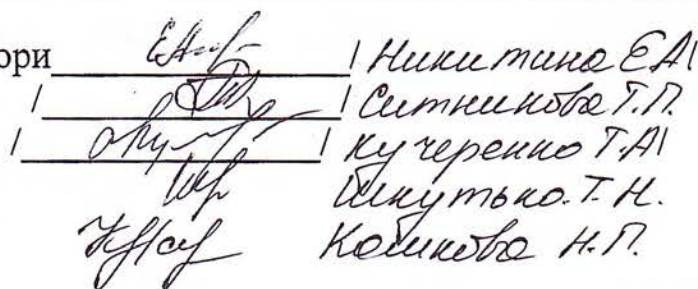 ори / Никитина ЕА/
/ / Ситникова Т.П.
/ / Кучеренко Т.А/
Шкутько. Т. Н.
Кошкова Н.П.